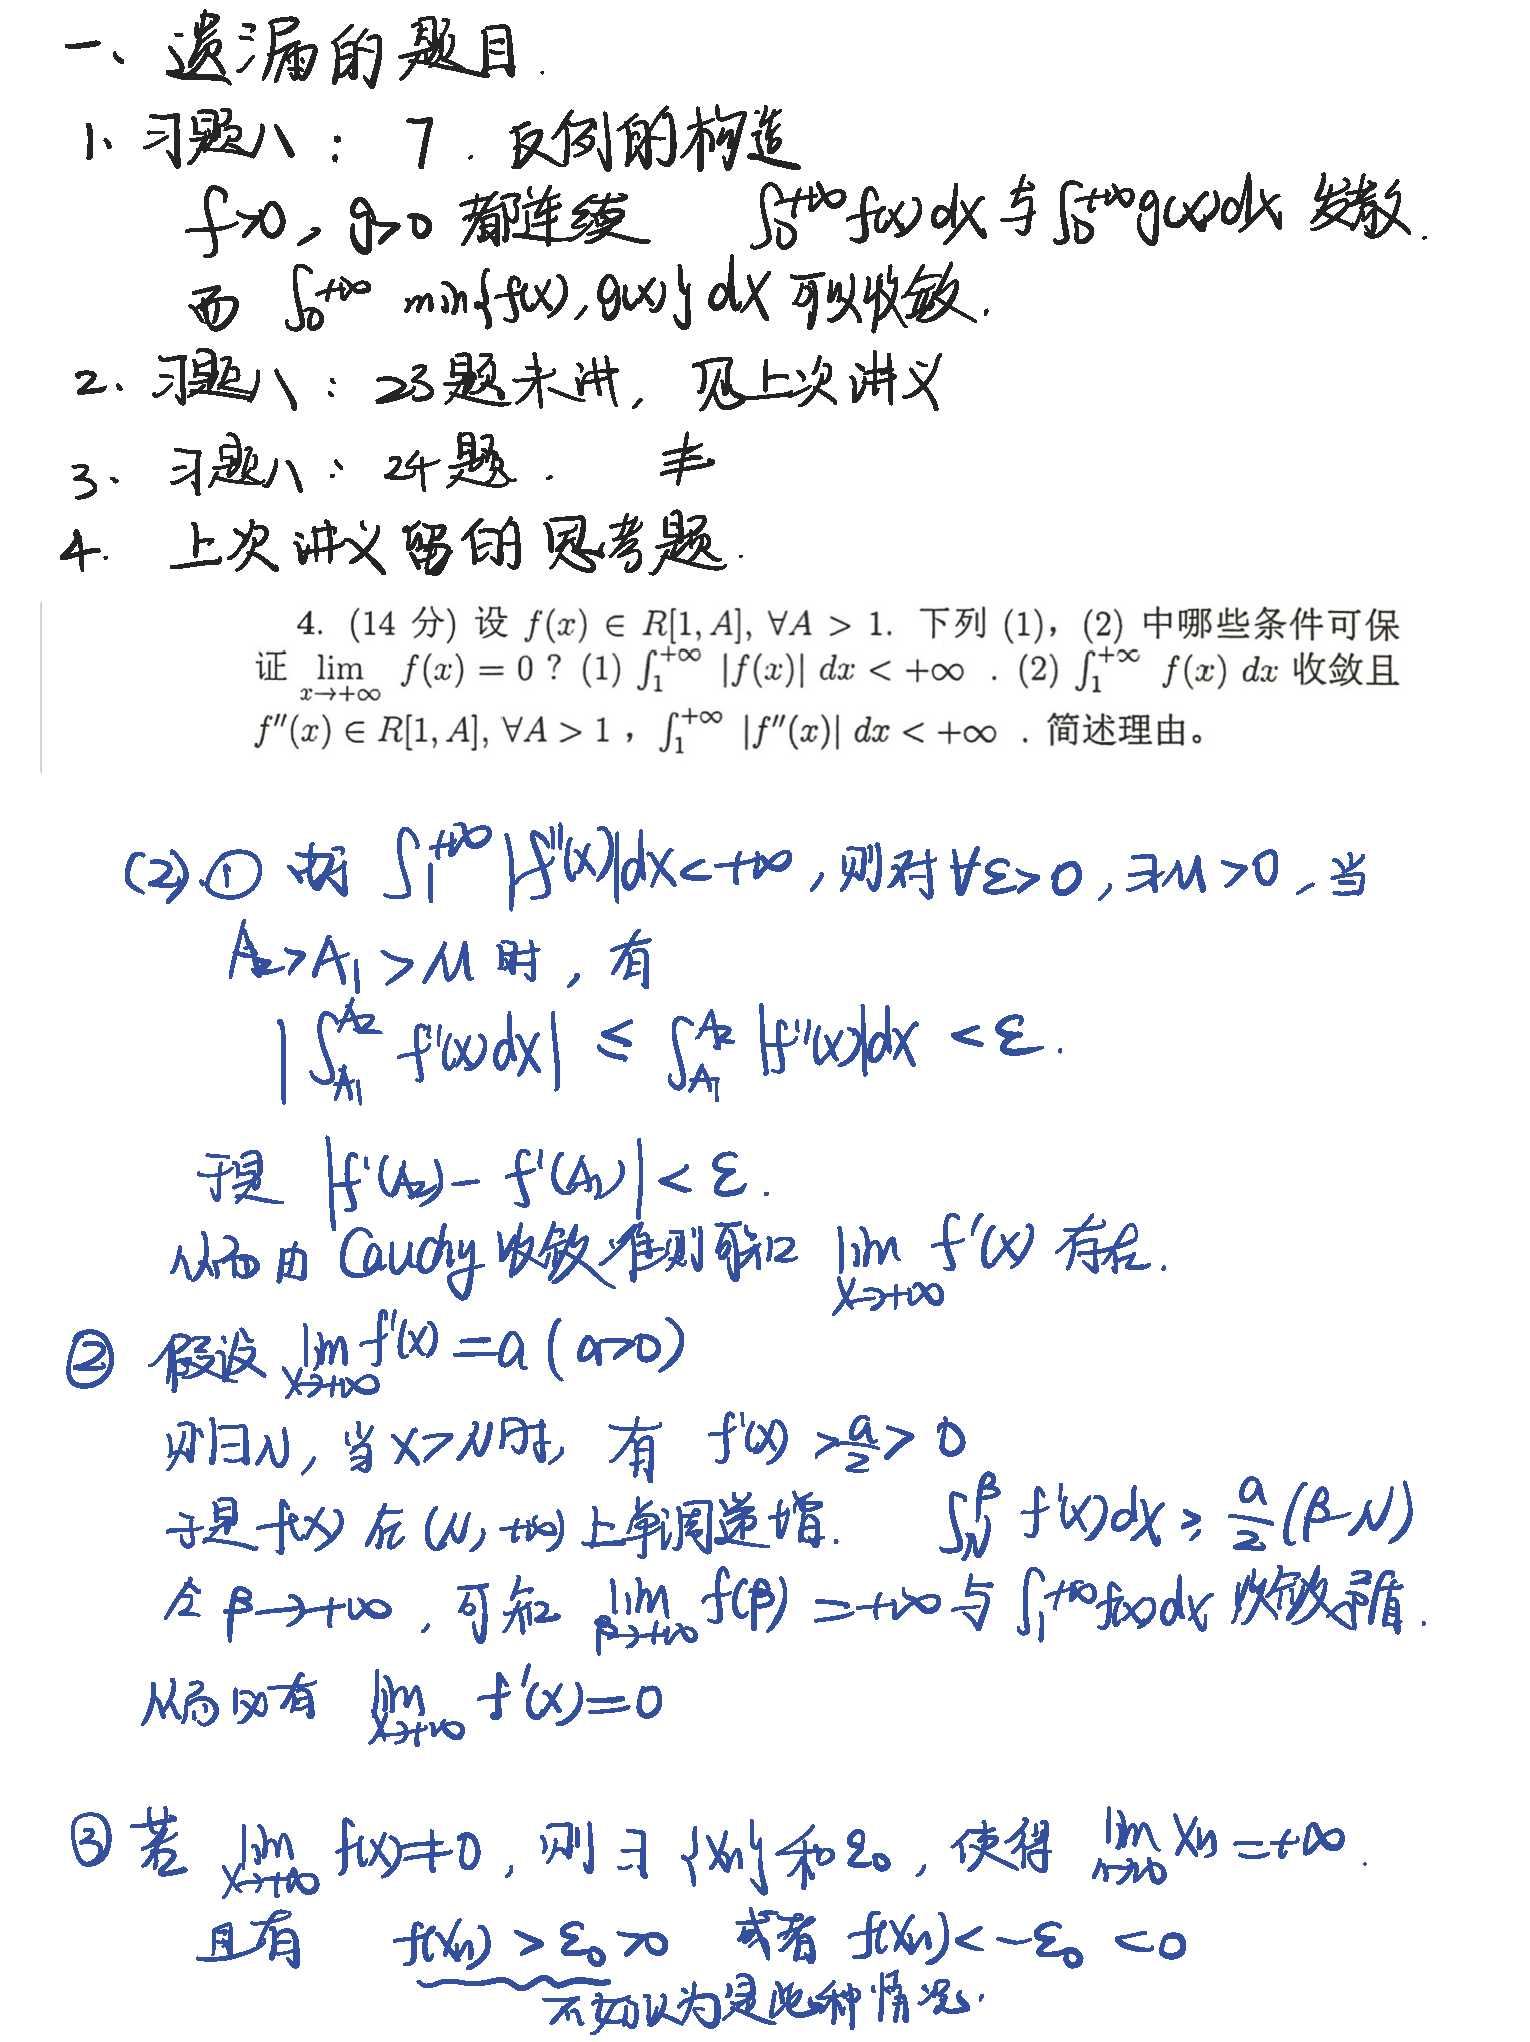 一、遗漏的题目.
1、习题八： 7. 反例的构造
f>0, g>0 都连续 ∫₀^{+∞} f(x)dx 与 ∫₀^{+∞} g(x)dx 发散.
而 ∫₀^{+∞} min{f(x), g(x)}dx 可以收敛.
2、习题八：23题未讲, 见上次讲义
3、习题八：24题.
4. 上次讲义留的思考题.
4. (14 分) 设 f(x) ∈ R[1, A], ∀A > 1. 下列 (1), (2) 中哪些条件可保
证 lim_{x→+∞} f(x) = 0 ? (1) ∫₁^{+∞} |f(x)| dx < +∞ . (2) ∫₁^{+∞} f(x) dx 收敛且
f''(x) ∈ R[1, A], ∀A > 1 , ∫₁^{+∞} |f''(x)| dx < +∞ . 简述理由。
(2) ① 由于 ∫₁^{+∞} |f''(x)|dx < +∞, 则对 ∀ε>0, ∃M>0, 当
A₂>A₁>M 时, 有
|∫_{A₁}^{A₂} f''(x)dx| ≤ ∫_{A₁}^{A₂} |f''(x)|dx < ε.
于是 |f'(A₂) - f'(A₁)| < ε.
从而由 Cauchy 收敛准则可知 lim_{x→+∞} f'(x) 存在.
② 假设 lim_{x→+∞} f'(x) = a (a>0)
则∃N, 当 x>N时, 有 f'(x) > a/2 > 0
于是 f(x) 在 (N, +∞) 上单调递增. ∫_N^β f'(x)dx ≥ a/2 (β-N)
令 β→+∞, 可知 lim_{β→+∞} f(β) = +∞ 与 ∫₁^{+∞} f(x)dx 收敛矛盾.
从而必有 lim_{x→+∞} f'(x) = 0
③ 若 lim_{x→+∞} f(x) ≠ 0, 则 ∃ {xₙ} 和 ε₀, 使得 lim_{n→∞} xₙ = +∞.
且有 f(xₙ) > ε₀ > 0 或者 f(xₙ) < -ε₀ < 0
不妨认为是此种情况.